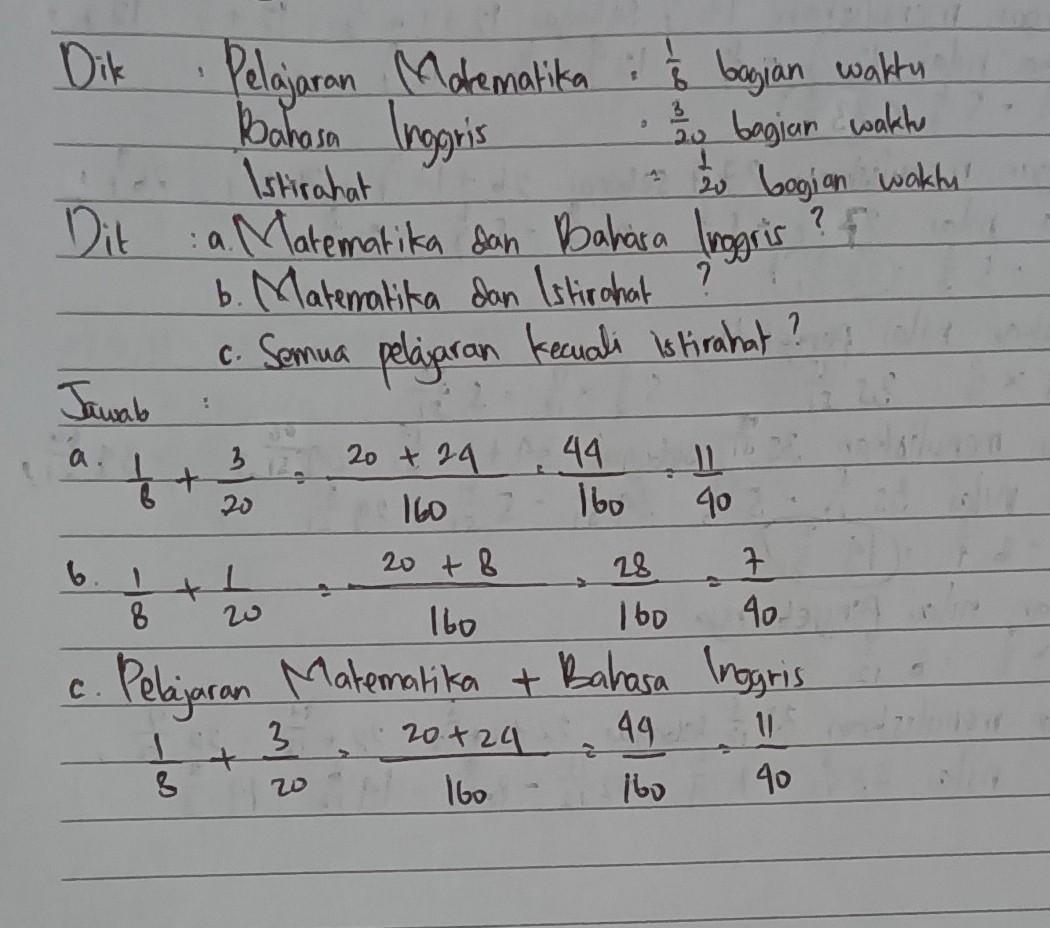 Dik : Pelajaran Matematika : 1/8 bagian waktu
Bahasa Inggris : 3/20 bagian waktu
Istirahat = 1/20 bagian waktu
Dit : a. Matematika dan Bahasa Inggris ?
b. Matematika dan Istirahat ?
c. Semua pelajaran kecuali istirahat ?
Jawab :
a. 1/8 + 3/20 = 20 + 24/160 = 44/160 = 11/40
b. 1/8 + 1/20 = 20 + 8/160 = 28/160 = 7/40
c. Pelajaran Matematika + Bahasa Inggris
1/8 + 3/20 = 20 + 24/160 = 44/160 = 11/40